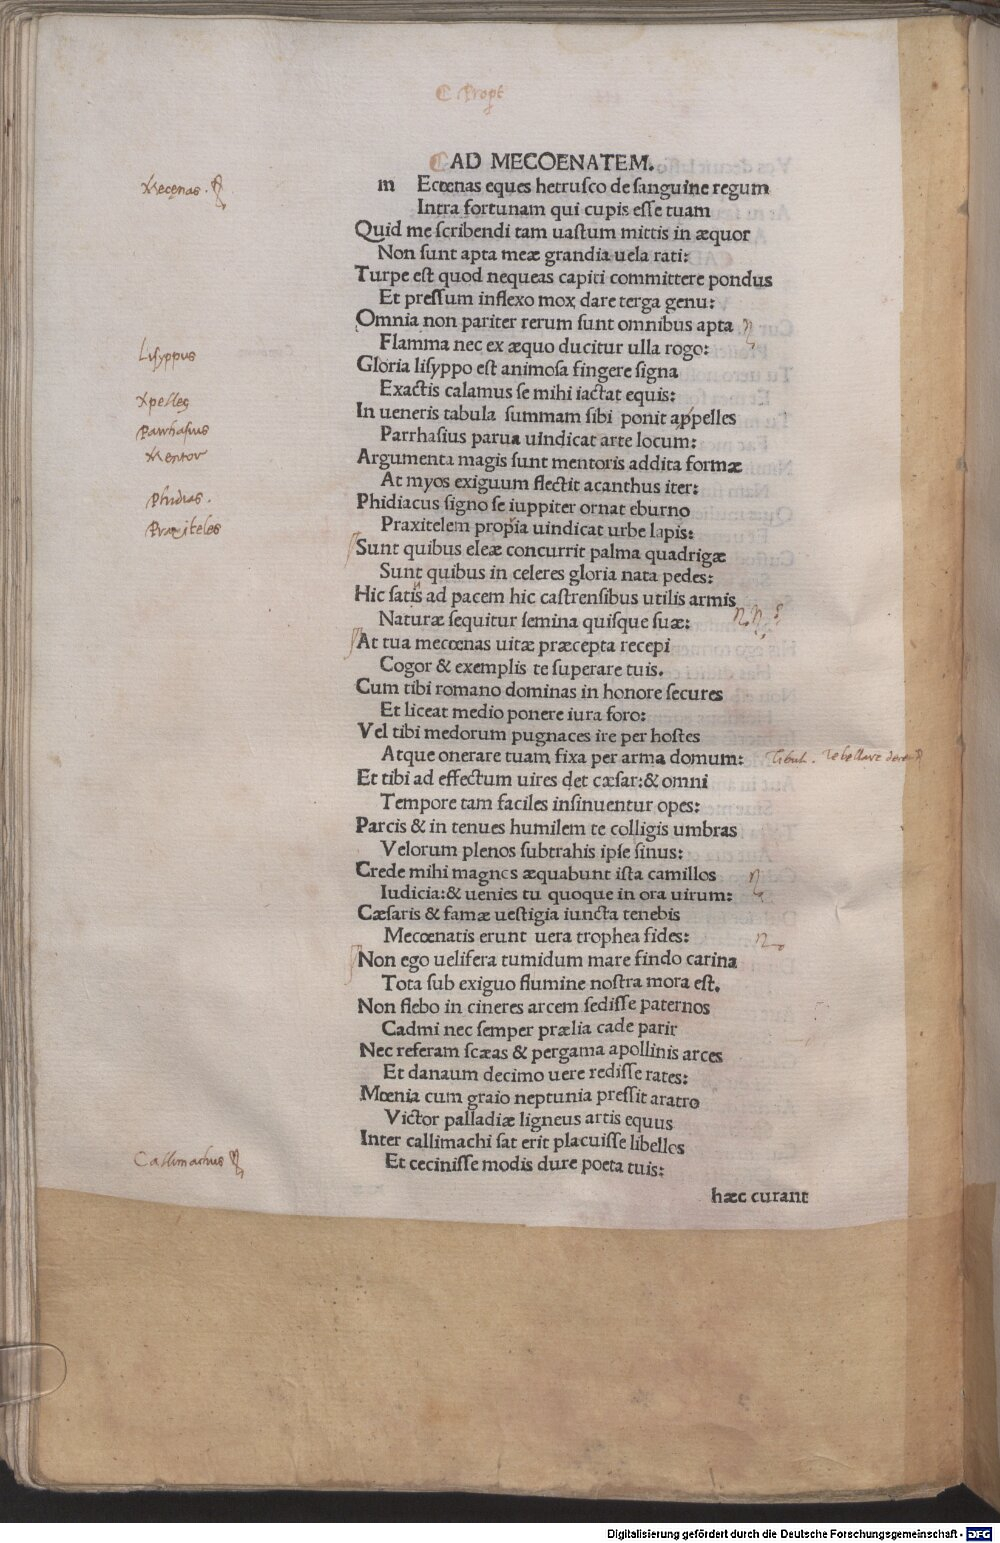 C Propt
AD MECOENATEM.
m Ecœnas eques hetrusco de sanguine regum
Intra fortunam qui cupis esse tuam
Quid me scribendi tam uastum mittis in æquor
Non sunt apta meæ grandia uela rati:
Turpe est quod nequeas capiti committere pondus
Et pressum inflexo mox dare terga genu:
Omnia non pariter rerum sunt omnibus apta
Flamma nec ex æquo ducitur ulla rogo:
Gloria lisyppo est animosa fingere signa
Exactis calamus se mihi iactat equis:
In ueneris tabula summam sibi ponit appelles
Parrhasius parua uindicat arte locum:
Argumenta magis sunt mentoris addita formæ
At myos exiguum flectit acanthus iter:
Phidiacus signo se iuppiter ornat eburno
Praxitelem propria uindicat urbe lapis:
Sunt quibus eleæ concurrit palma quadrigæ
Sunt quibus in celeres gloria nata pedes:
Hic satis ad pacem hic castrensibus utilis armis
Naturæ sequitur semina quisque suæ:
At tua mecœnas uitæ præcepta recepi
Cogor & exemplis te superare tuis.
Cum tibi romano dominas in honore secures
Et liceat medio ponere iura foro:
Vel tibi medorum pugnaces ire per hostes
Atque onerare tuam fixa per arma domum:
Et tibi ad effectum uires det cæsar: & omni
Tempore tam faciles insinuentur opes:
Parcis & in tenues humilem te colligis umbras
Velorum plenos subtrahis ipse sinus:
Crede mihi magnos æquabunt ista camillos
Iudicia: & uenies tu quoque in ora uirum:
Cæsaris & famæ uestigia iuncta tenebis
Mecœnatis erunt uera trophea fides:
Non ego uelifera tumidum mare findo carina
Tota sub exiguo flumine nostra mora est.
Non flebo in cineres arcem sedisse paternos
Cadmi nec semper prælia cade parir
Nec referam scæas & pergama apollinis arces
Et danaum decimo uere redisse rates:
Mœnia cum graio neptunia pressit aratro
Victor palladiæ ligneus artis equus
Inter callimachi sat erit placuisse libellos
Et cecinisse modis dure poeta tuis:
hæc curant
Mecęnas.
Lisyppus
Apelles
Parrhasius
Mentor
Phidias.
Praxiteles
Tibul.
Callimachus
Digitalisierung gefördert durch die Deutsche Forschungsgemeinschaft - DFG